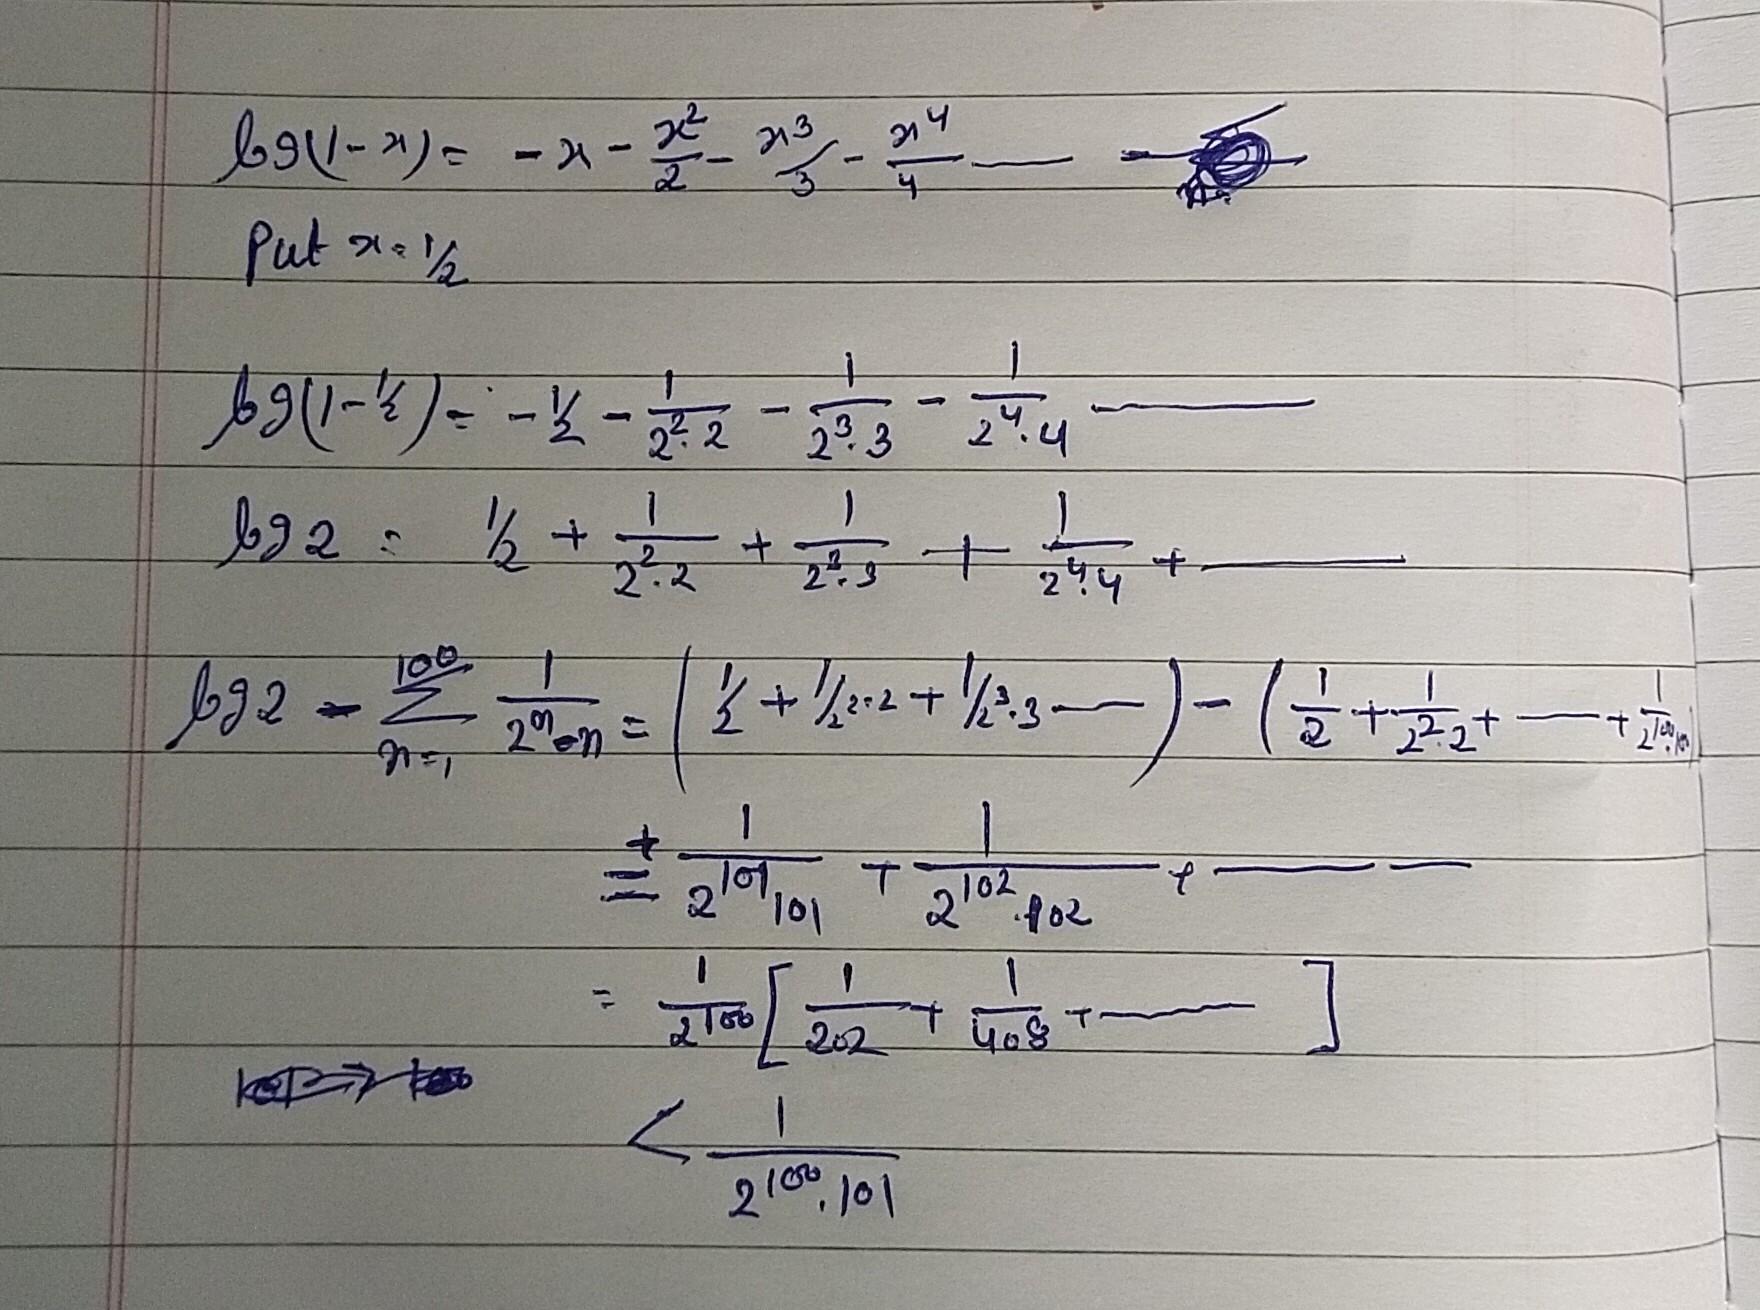 log(1-x) = -x - x²/2 - x³/3 - x⁴/4 ——
Put x = 1/2
log(1-1/2) = -1/2 - 1/2²·2 - 1/2³·3 - 1/2⁴·4 ——
log 2 = 1/2 + 1/2²·2 + 1/2³·3 + 1/2⁴·4 + ——
log 2 - Σ_{n=1}^{100} 1/2ⁿ·n = (1/2 + 1/2²·2 + 1/2³·3 ——) - (1/2 + 1/2²·2 + —— + 1/2¹⁰⁰·100)
= + 1/2¹⁰¹·101 + 1/2¹⁰²·102 + —— —
= 1/2¹⁰⁰ [1/202 + 1/408 + ——]
< 1/2¹⁰⁰·101